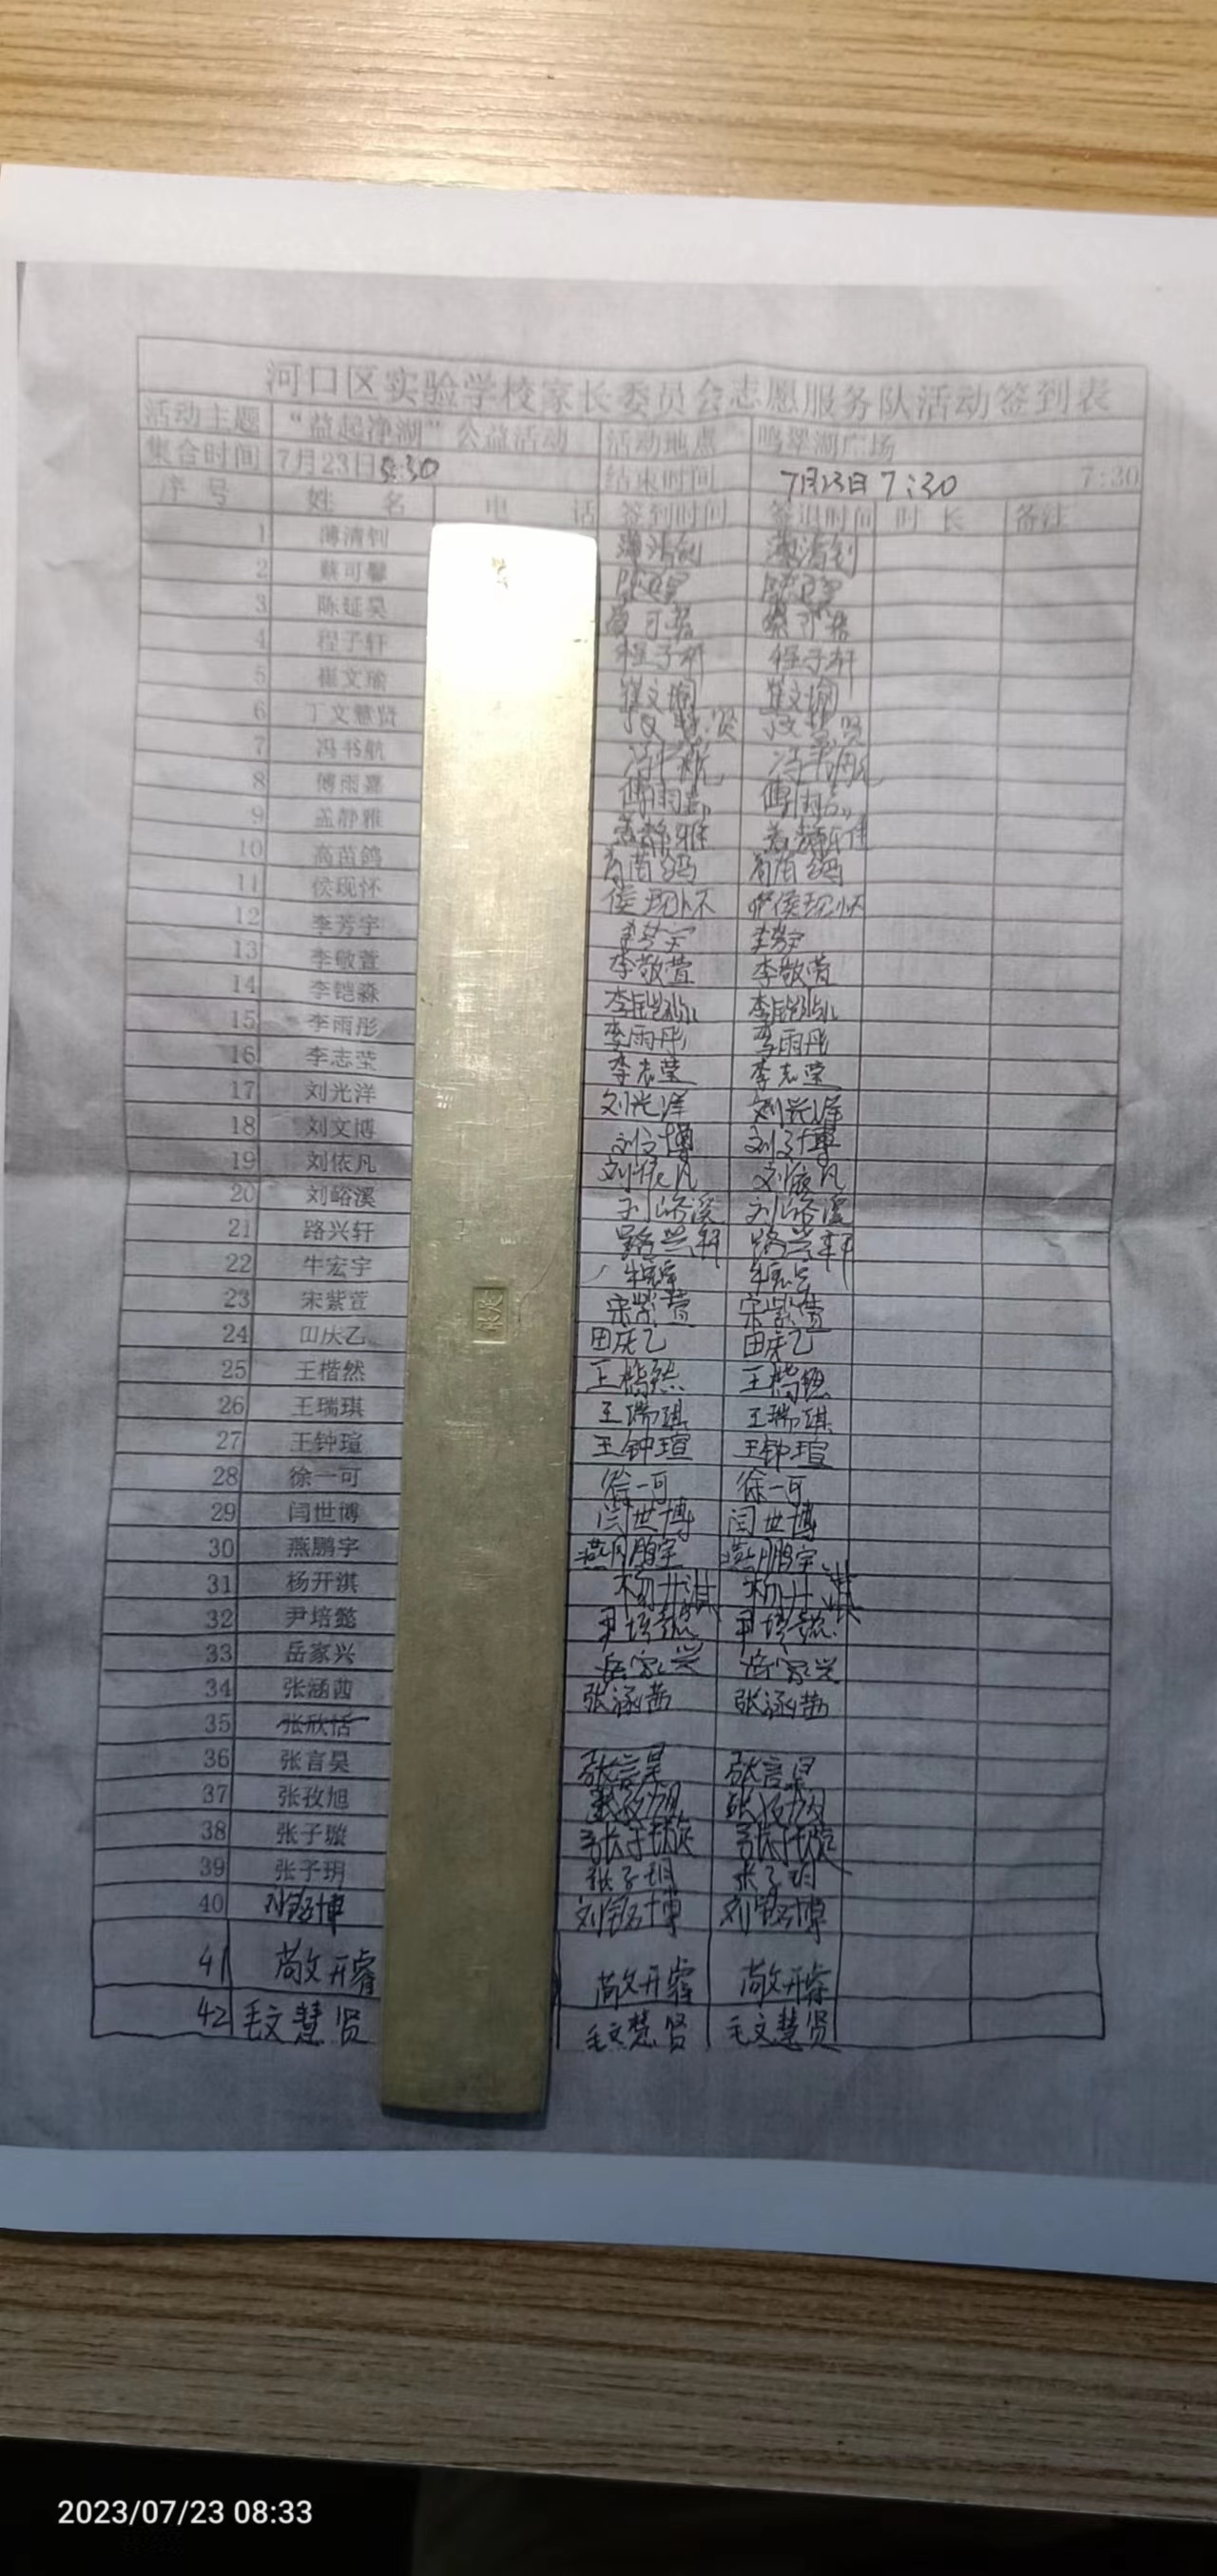 河口区实验学校家长委员会志愿服务队活动签到表
活动主题 “益起净湖”公益活动 活动地点 鸣翠湖广场
集合时间 7月23日5:30 结束时间 7月23日 7:30 7:30
序号 姓名 电话 签到时间 签退时间 时长 备注
1 薄清钊 薄清钊 薄清钊
2 蔡可馨
3 陈延昊
4 程子轩 程子轩 程子轩
5 崔文瑜 崔文瑜 崔文瑜
6 丁文慧贤 丁文慧贤 丁文慧贤
7 冯书航 冯书航 冯书航
8 傅雨嘉 傅雨嘉 傅雨嘉
9 孟静雅 孟静雅
10 高苗鸽 高苗鸽 高苗鸽
11 侯现怀 侯现怀 侯现怀
12 李芳宇 李芳宇 李芳宇
13 李敬萱 李敬萱 李敬萱
14 李铠淼 李铠淼 李铠淼
15 李雨彤 李雨彤 李雨彤
16 李志莹 李志莹 李志莹
17 刘光洋 刘光洋 刘光洋
18 刘文博 刘文博 刘文博
19 刘依凡 刘依凡 刘依凡
20 刘峪溪 刘峪溪 刘峪溪
21 路兴轩 路兴轩 路兴轩
22 牛宏宇 牛宏宇 牛宏宇
23 宋紫萱 宋紫萱 宋紫萱
24 田庆乙 田庆乙 田庆乙
25 王楷然 王楷然 王楷然
26 王瑞琪 王瑞琪 王瑞琪
27 王钟瑄 王钟瑄 王钟瑄
28 徐一可 徐一可 徐一可
29 闫世博 闫世博 闫世博
30 燕鹏宇 燕鹏宇 燕鹏宇
31 杨开淇 杨开淇 杨开淇
32 尹培懿 尹培懿 尹培懿
33 岳家兴 岳家兴 岳家兴
34 张涵茜 张涵茜 张涵茜
35 张欣恬
36 张言昊 张言昊 张言昊
37 张孜旭 张孜旭 张孜旭
38 张子璇 张子璇 张子璇
39 张子玥 张子玥 张子玥
40 刘铭博 刘铭博 刘铭博
41 商开睿 商开睿 商开睿
42 毛文慧贤 毛文慧贤 毛文慧贤
2023/07/23 08:33